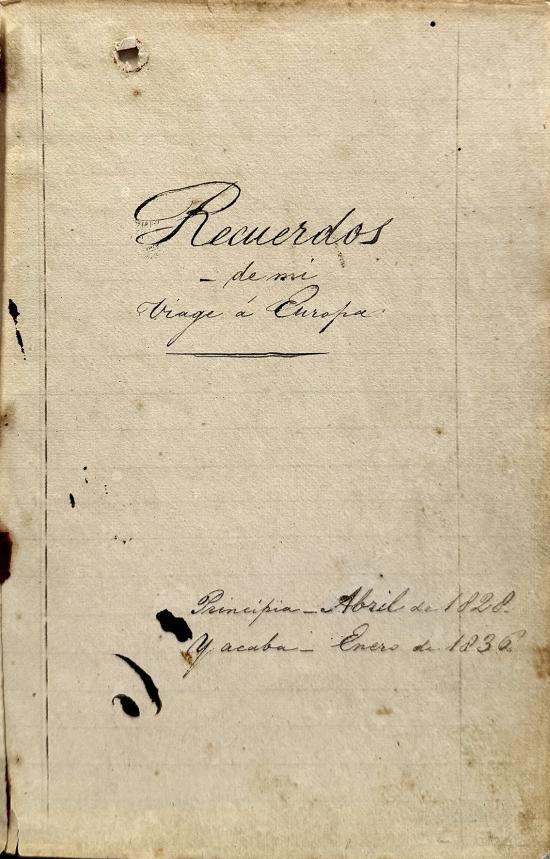 Recuerdos
- de mi
Viage á Europa.
Principia - Abril de 1828.
Y acaba - Enero de 1836.